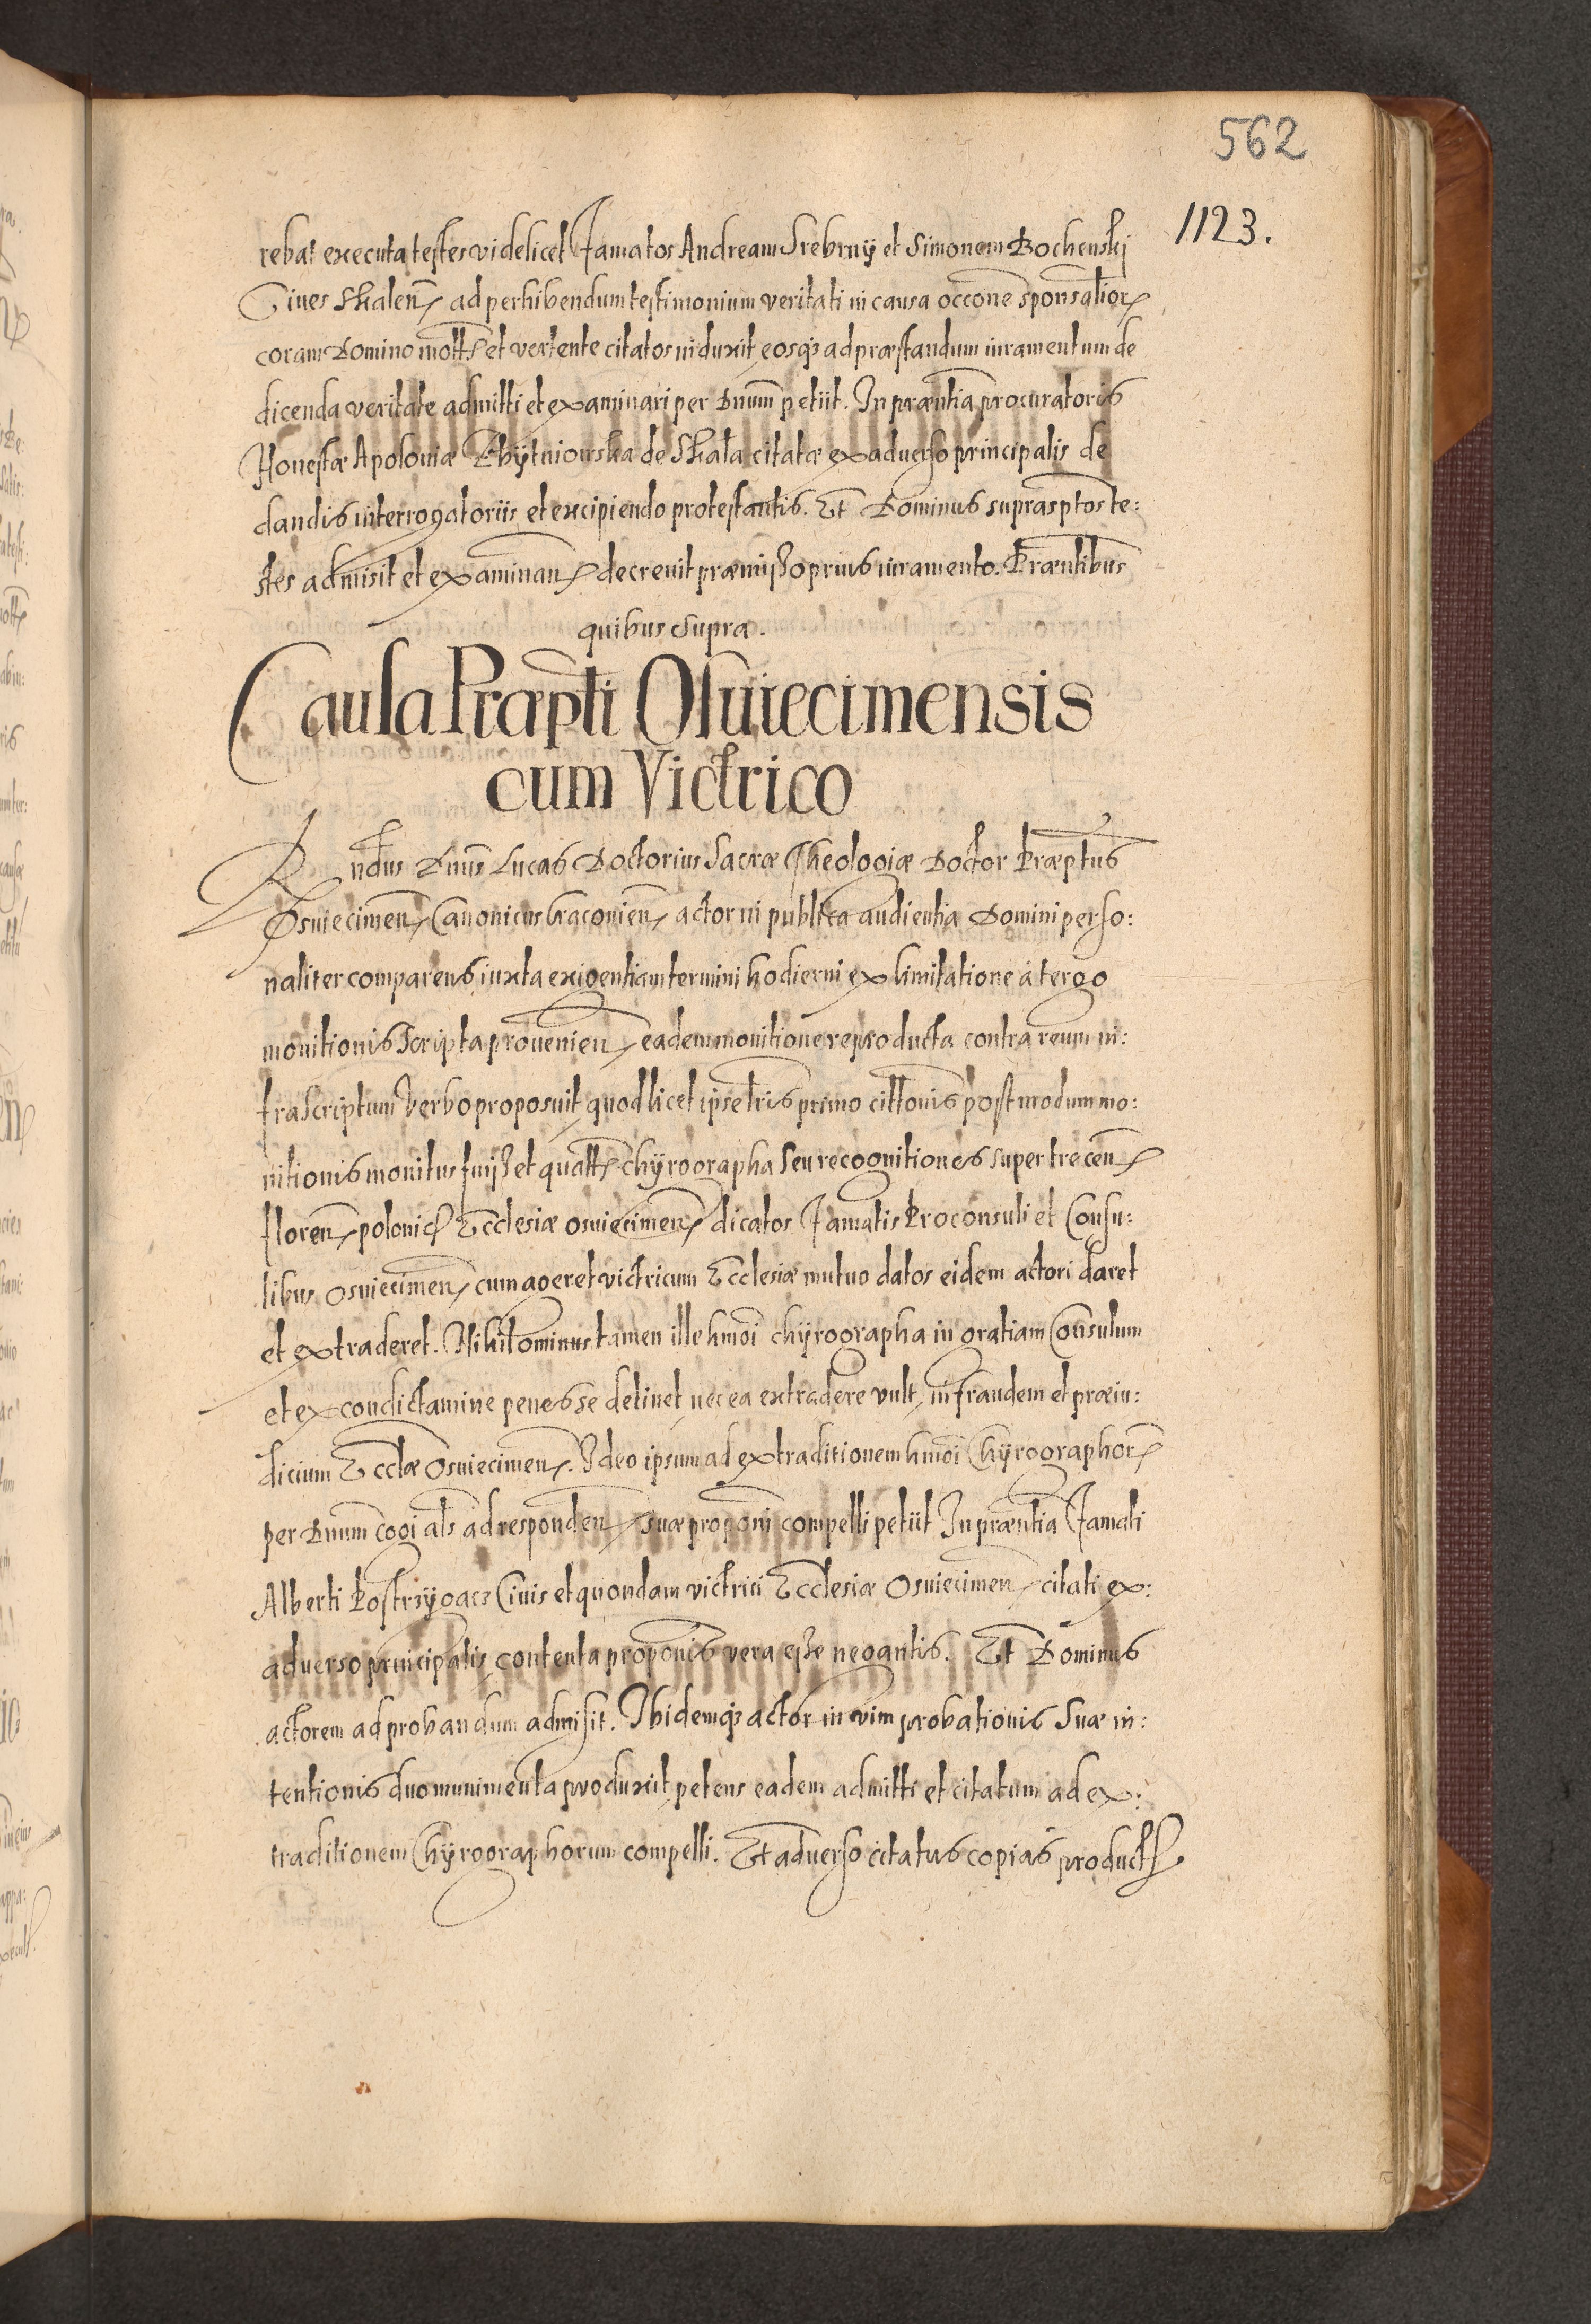 562
1123.
rebat executa testes videlicet Famatos Andream Srebrnÿ et Simonem Bochenski
Ciues Skaleñ ad perhibendum testimonium veritati in causa occone sponsalior
coram Domino mott et vertente citatos induxit eosq3 ad præstandum iuramentum de
dicenda veritate admitti et examinari per Dnum petiit. In præntia procuratoris
Honestæ Apoloniæ de Skala citatæ ex aduerso principalis de
dandis interrogatoriis et excipiendo protestantis. Et Dominus suprasptos te:
stes admisit et examinan decreuit præmisso prius iuramento. Præntibus
quibus supra.
Causa Præpti Osuiecimensis
cum Victrico
Rndus Dnus Lucas Doctorius Sacræ Theologiæ Doctor Præptus
Osuiecimen Canonicus Cracouien actor in publica audientia Domini perso:
naliter comparens iuxta exigentiam termini hodierni ex limitatione à tergo
monitionis scripta prouenien eadem monitione reproducta contra reum in:
frascriptum Verbo proposuit quod licet ipse tris primo cittonis postmodum mo:
nitionis monitus fuisset quatt chÿrographa seu recognitiones super trecen
floren polonic Ecclesiæ osuiecimen dicatos Famatis Proconsuli et Consu:
libus osuiecimen cum ageret victricum Ecclesiæ mutuo datos eidem actori daret
et extraderet. Nihilominus tamen ille hmoi chÿrographa in gratiam Consulum
et ex condictamine penes se detinet nec ea extradere vult, in fraudem et præiu:
dicium Ecclæ Osuiecimen. Ideo ipsum ad extraditionem hmoi Chÿrographor
per Dnum cogi als ad responden suæ proponi compelli petiit In præntia Famati
Alberti Postrzÿgacz Ciuis et quondam victrici Ecclesiæ Osuiecimen citati ex:
aduerso principalis contenta proponis vera esse negantis. Et Dominus
actorem ad probandum admisit. Ibidemq3 actor in vim probationis Suæ in:
tentionis duo munimenta produxit petens eadem admitti et citatum ad ex:
traditionem Chÿrographorum compelli. Et aduerso citatus copias product